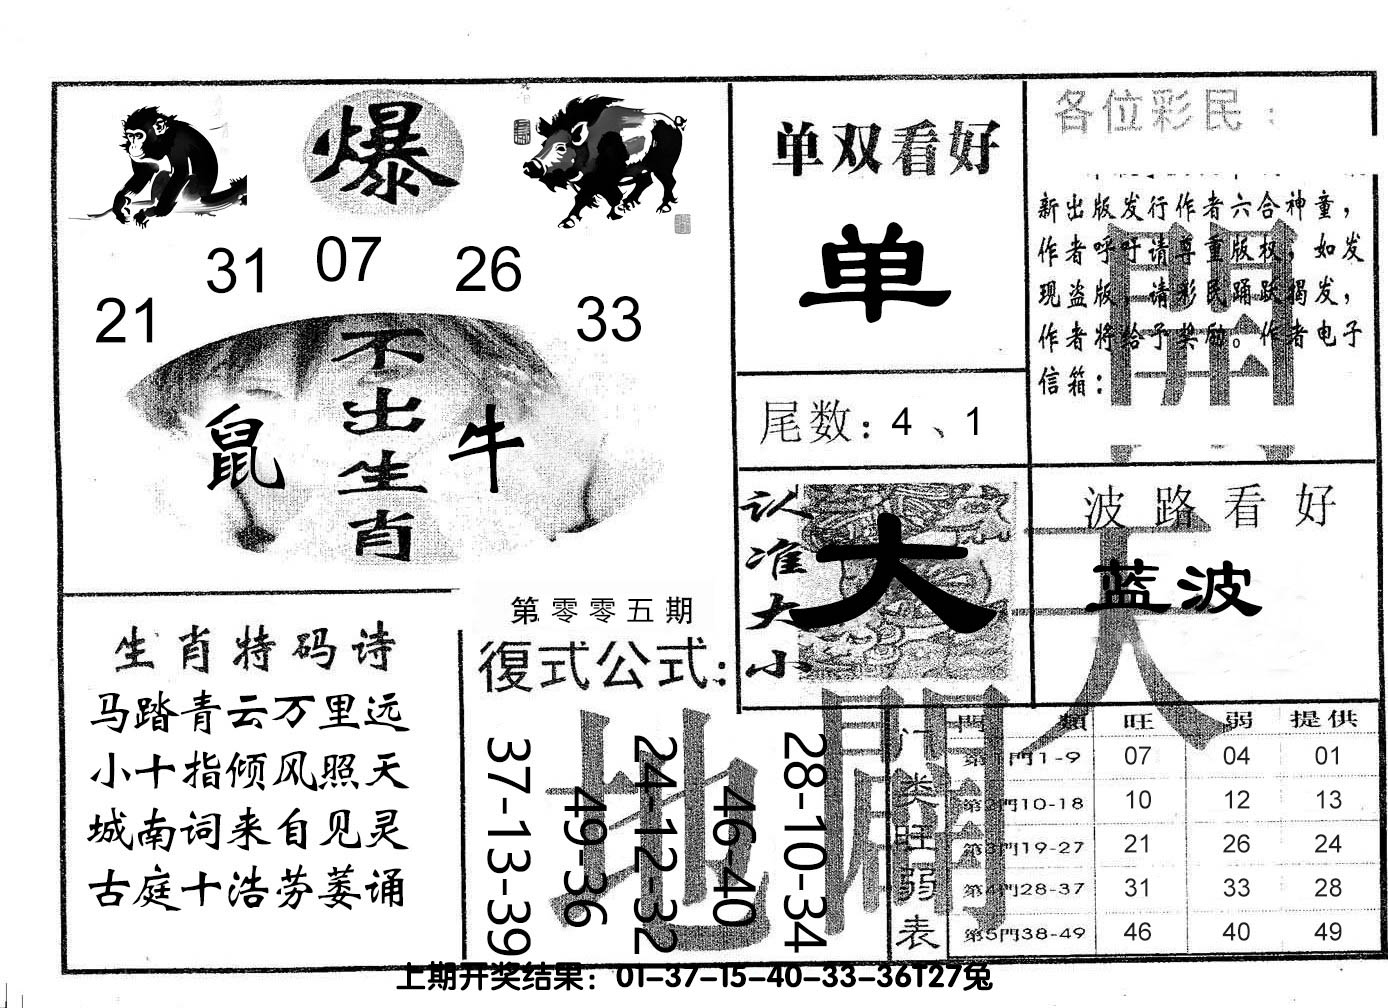 爆
31 07 26
21 33
不出生肖
鼠 牛
单双看好
单
尾数：4、1
各位彩民：
新出版发行作者六合神童，
作者呼吁请尊重版权，如发
现盗版，请彩民踊跃揭发，
作者将给予奖励。作者电子
信箱：
認准大小
大
波路看好
蓝波
生肖特码诗
马踏青云万里远
小十指倾风照天
城南词来自见灵
古庭十浩劳萎诵
第零零五期
復式公式：
37-13-39
49-36
24-12-32
46-40
28-10-34
天
地
門类旺弱表
門 類 旺 弱 提供
第1門1-9 07 04 01
第2門10-18 10 12 13
第3門19-27 21 26 24
第4門28-37 31 33 28
第5門38-49 46 40 49
上期开奖结果：01-37-15-40-33-36T27兔